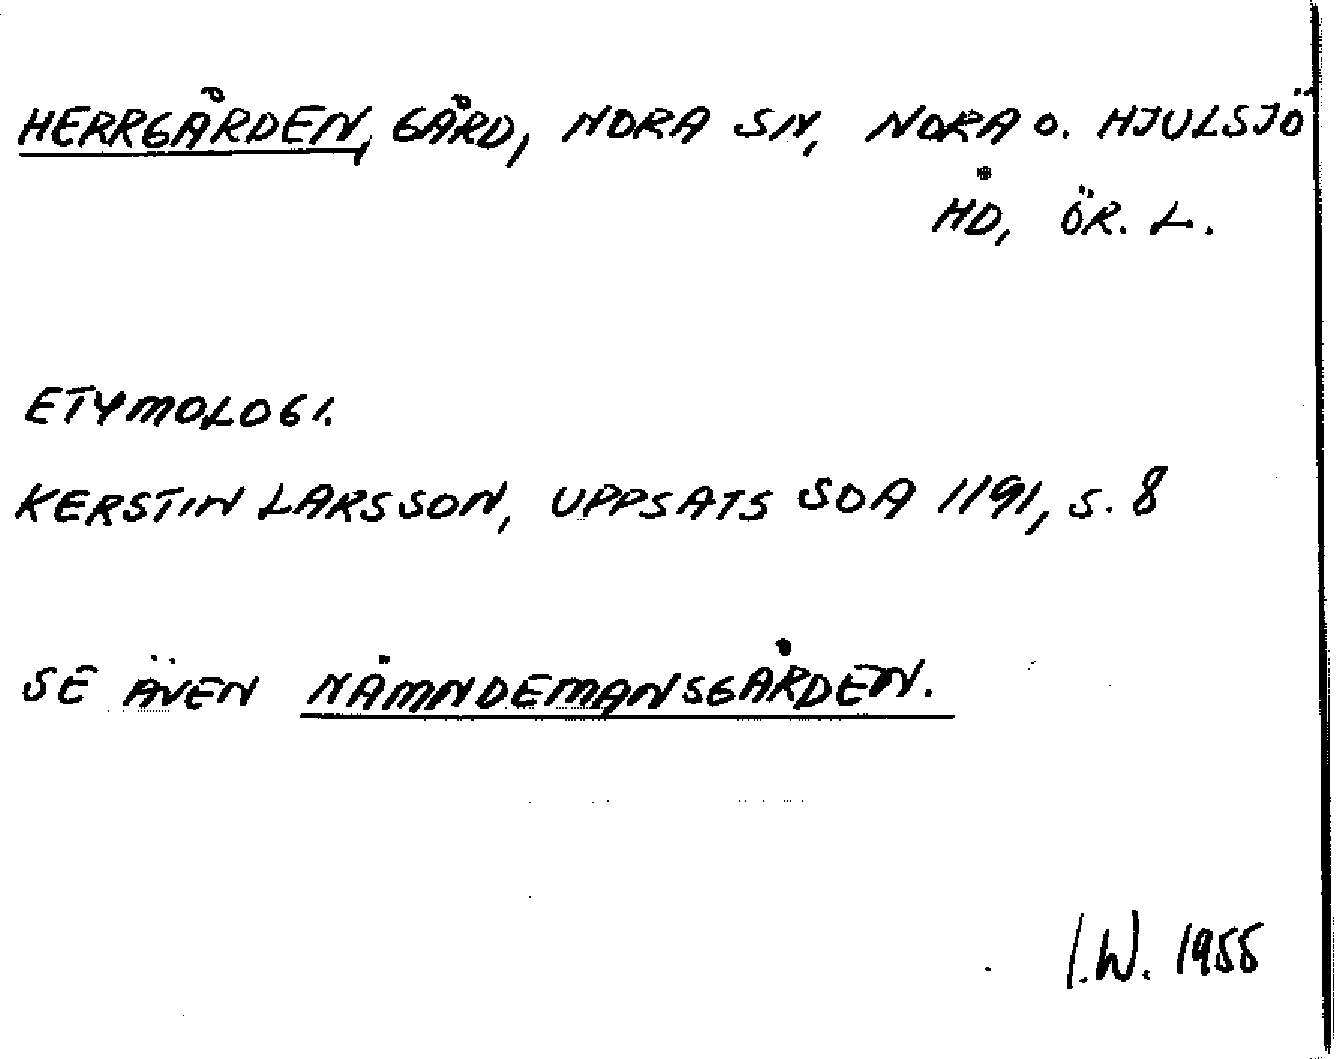 HERRGÅRDEN, GÅRD, NORA SN, NORA O. HJULSJÖ
HD, ÖR. L.
ETYMOLOGI.
KERSTIN LARSSON, UPPSATS SOA 1191, S. 8
SE ÄVEN NÄMNDEMANSGÅRDEN.
I.W. 1955